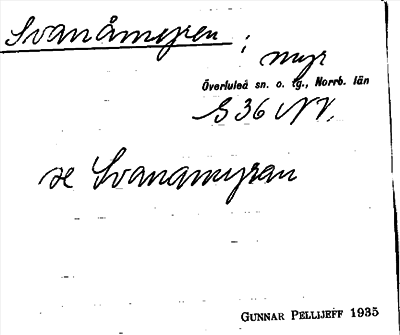 Svanåmyren ;
myr
Överluleå sn. o. tg., Norrb. län
S 36 NV,
se Svanamyran
GUNNAR PELLIJEFF 1935